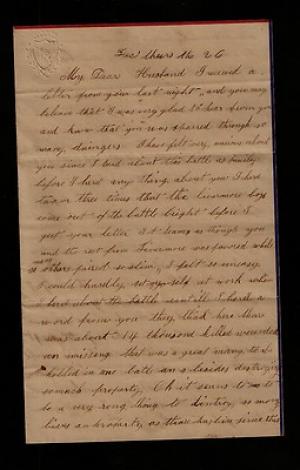 Dec thurs the 26
My Dear Husband I received a
letter from you last night and you may
beleave that I was very glad to hear from you
and know that you was sparred through so
many daingers I have felt very uneasy about
you since I herd about the battle
before I herd any thing about you I herd
two or three times that the Livermore boys
come out of the battle bright before I
got your letter It seams as though you
and the rest from Livermore was favored while
so others faired so slim, I felt so uneasy
I could hardly set myself at work when
I herd about the battle untill I herd a
word from you they think here there
was about 14 thousand killed wounded
an missing that was a great many to be
killed in one battle an a besides destroying
somuch property, Oh it seams to me to
be a very rong thing to distroy so many
lives and property as there has bin since this